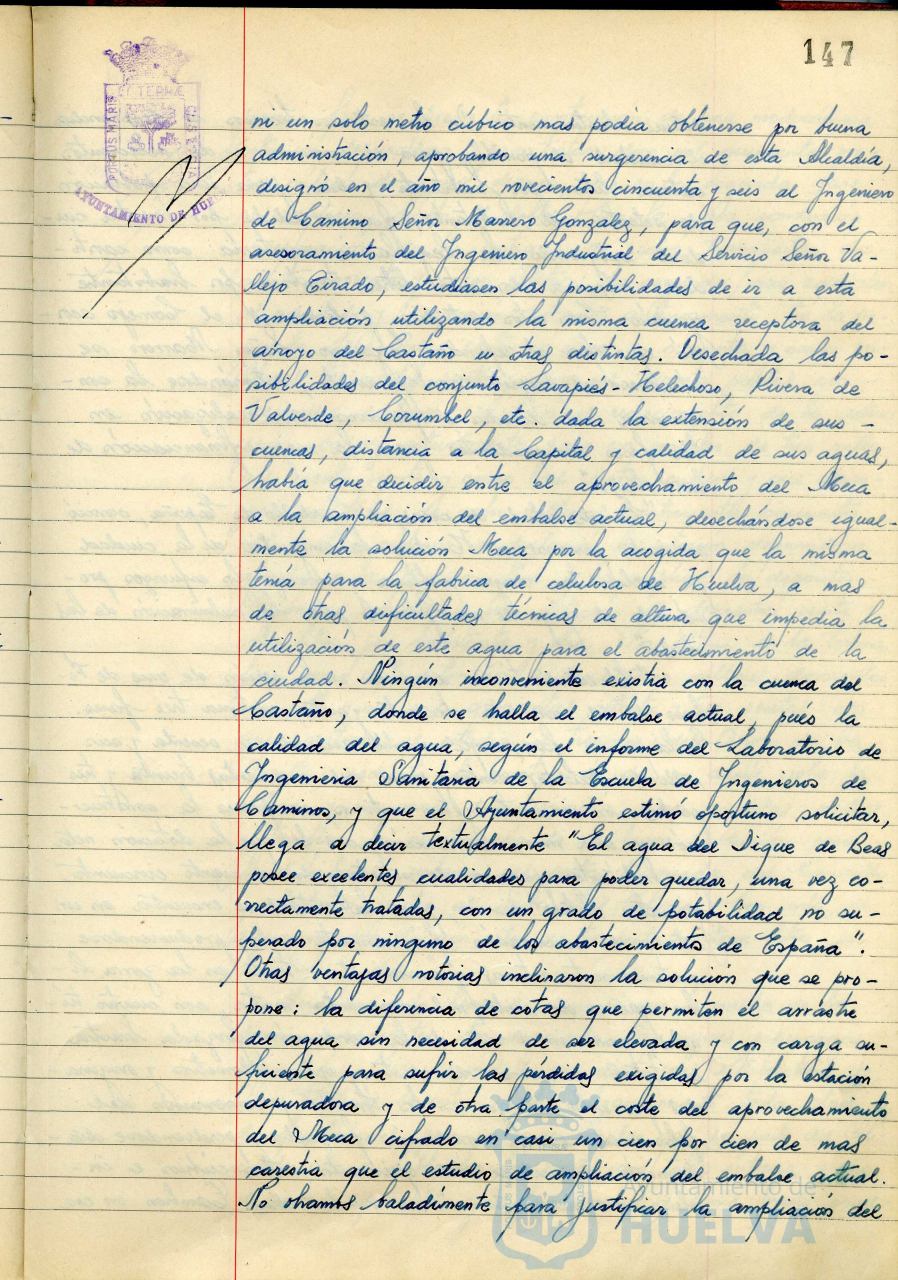 147
PORTUS MARIS ET TERRAE CUSTODIA
AYUNTAMIENTO DE HUE
ni un solo metro cúbico mas podia obtenerse por buena
administración, aprobando una surgerencia de esta Alcaldía,
designó en el año mil novecientos cincuenta y seis al Ingeniero
de Camino Señor Marrero Gonzalez, para que, con el
asesoramiento del Ingeniero Industrial del Servicio Señor Va-
llejo Tirado, estudiasen las posibilidades de ir a esta
ampliación utilizando la misma cuenca receptora del
arroyo del Castaño u otras distintas. Desechada las po-
sibilidades del conjunto Lavapiés-Helechoso, Rivera de
Valverde, Corumbel, etc. dada la extensión de sus -
cuencas, distancia a la Capital y calidad de sus aguas,
había que decidir entre el aprovechamiento del Meca
a la ampliación del embalse actual, desechándose igual-
mente la solución Meca por la acogida que la misma
tenia para la fabrica de celulosa de Huelva, a mas
de otras dificultades técnicas de altura que impedia la
utilización de este agua para el abastecimiento de la
ciudad. Ningún inconveniente existia con la cuenca del
Castaño, donde se halla el embalse actual, pués la
calidad del agua, según el informe del Laboratorio de
Ingenieria Sanitaria de la Escuela de Ingenieros de
Caminos, y que el Ayuntamiento estimó oportuno solicitar,
llega a decir textualmente "El agua del Dique de Beas
posee excelentes cualidades para poder quedar, una vez co-
rrectamente tratadas, con un grado de potabilidad no su-
perado por ninguno de los abastecimientos de España".
Otras ventajas notorias inclinaron la solución que se pro-
pone: la diferencia de cotas que permiten el arrastre
del agua sin necesidad de ser elevada y con carga su-
ficiente para sufrir las pérdidas exigidas por la estación
depuradora y de otra parte el coste del aprovechamiento
del Meca cifrado en casi un cien por cien de mas
carestia que el estudio de ampliación del embalse actual.
No obramos baladimente para justificar la ampliación del
Ayuntamiento de
HUELVA